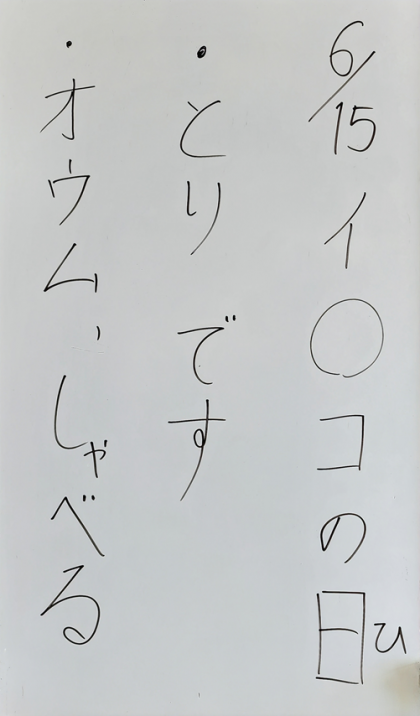 6/15 イ〇コの日ひ
・とりです
・オウム、しゃべる